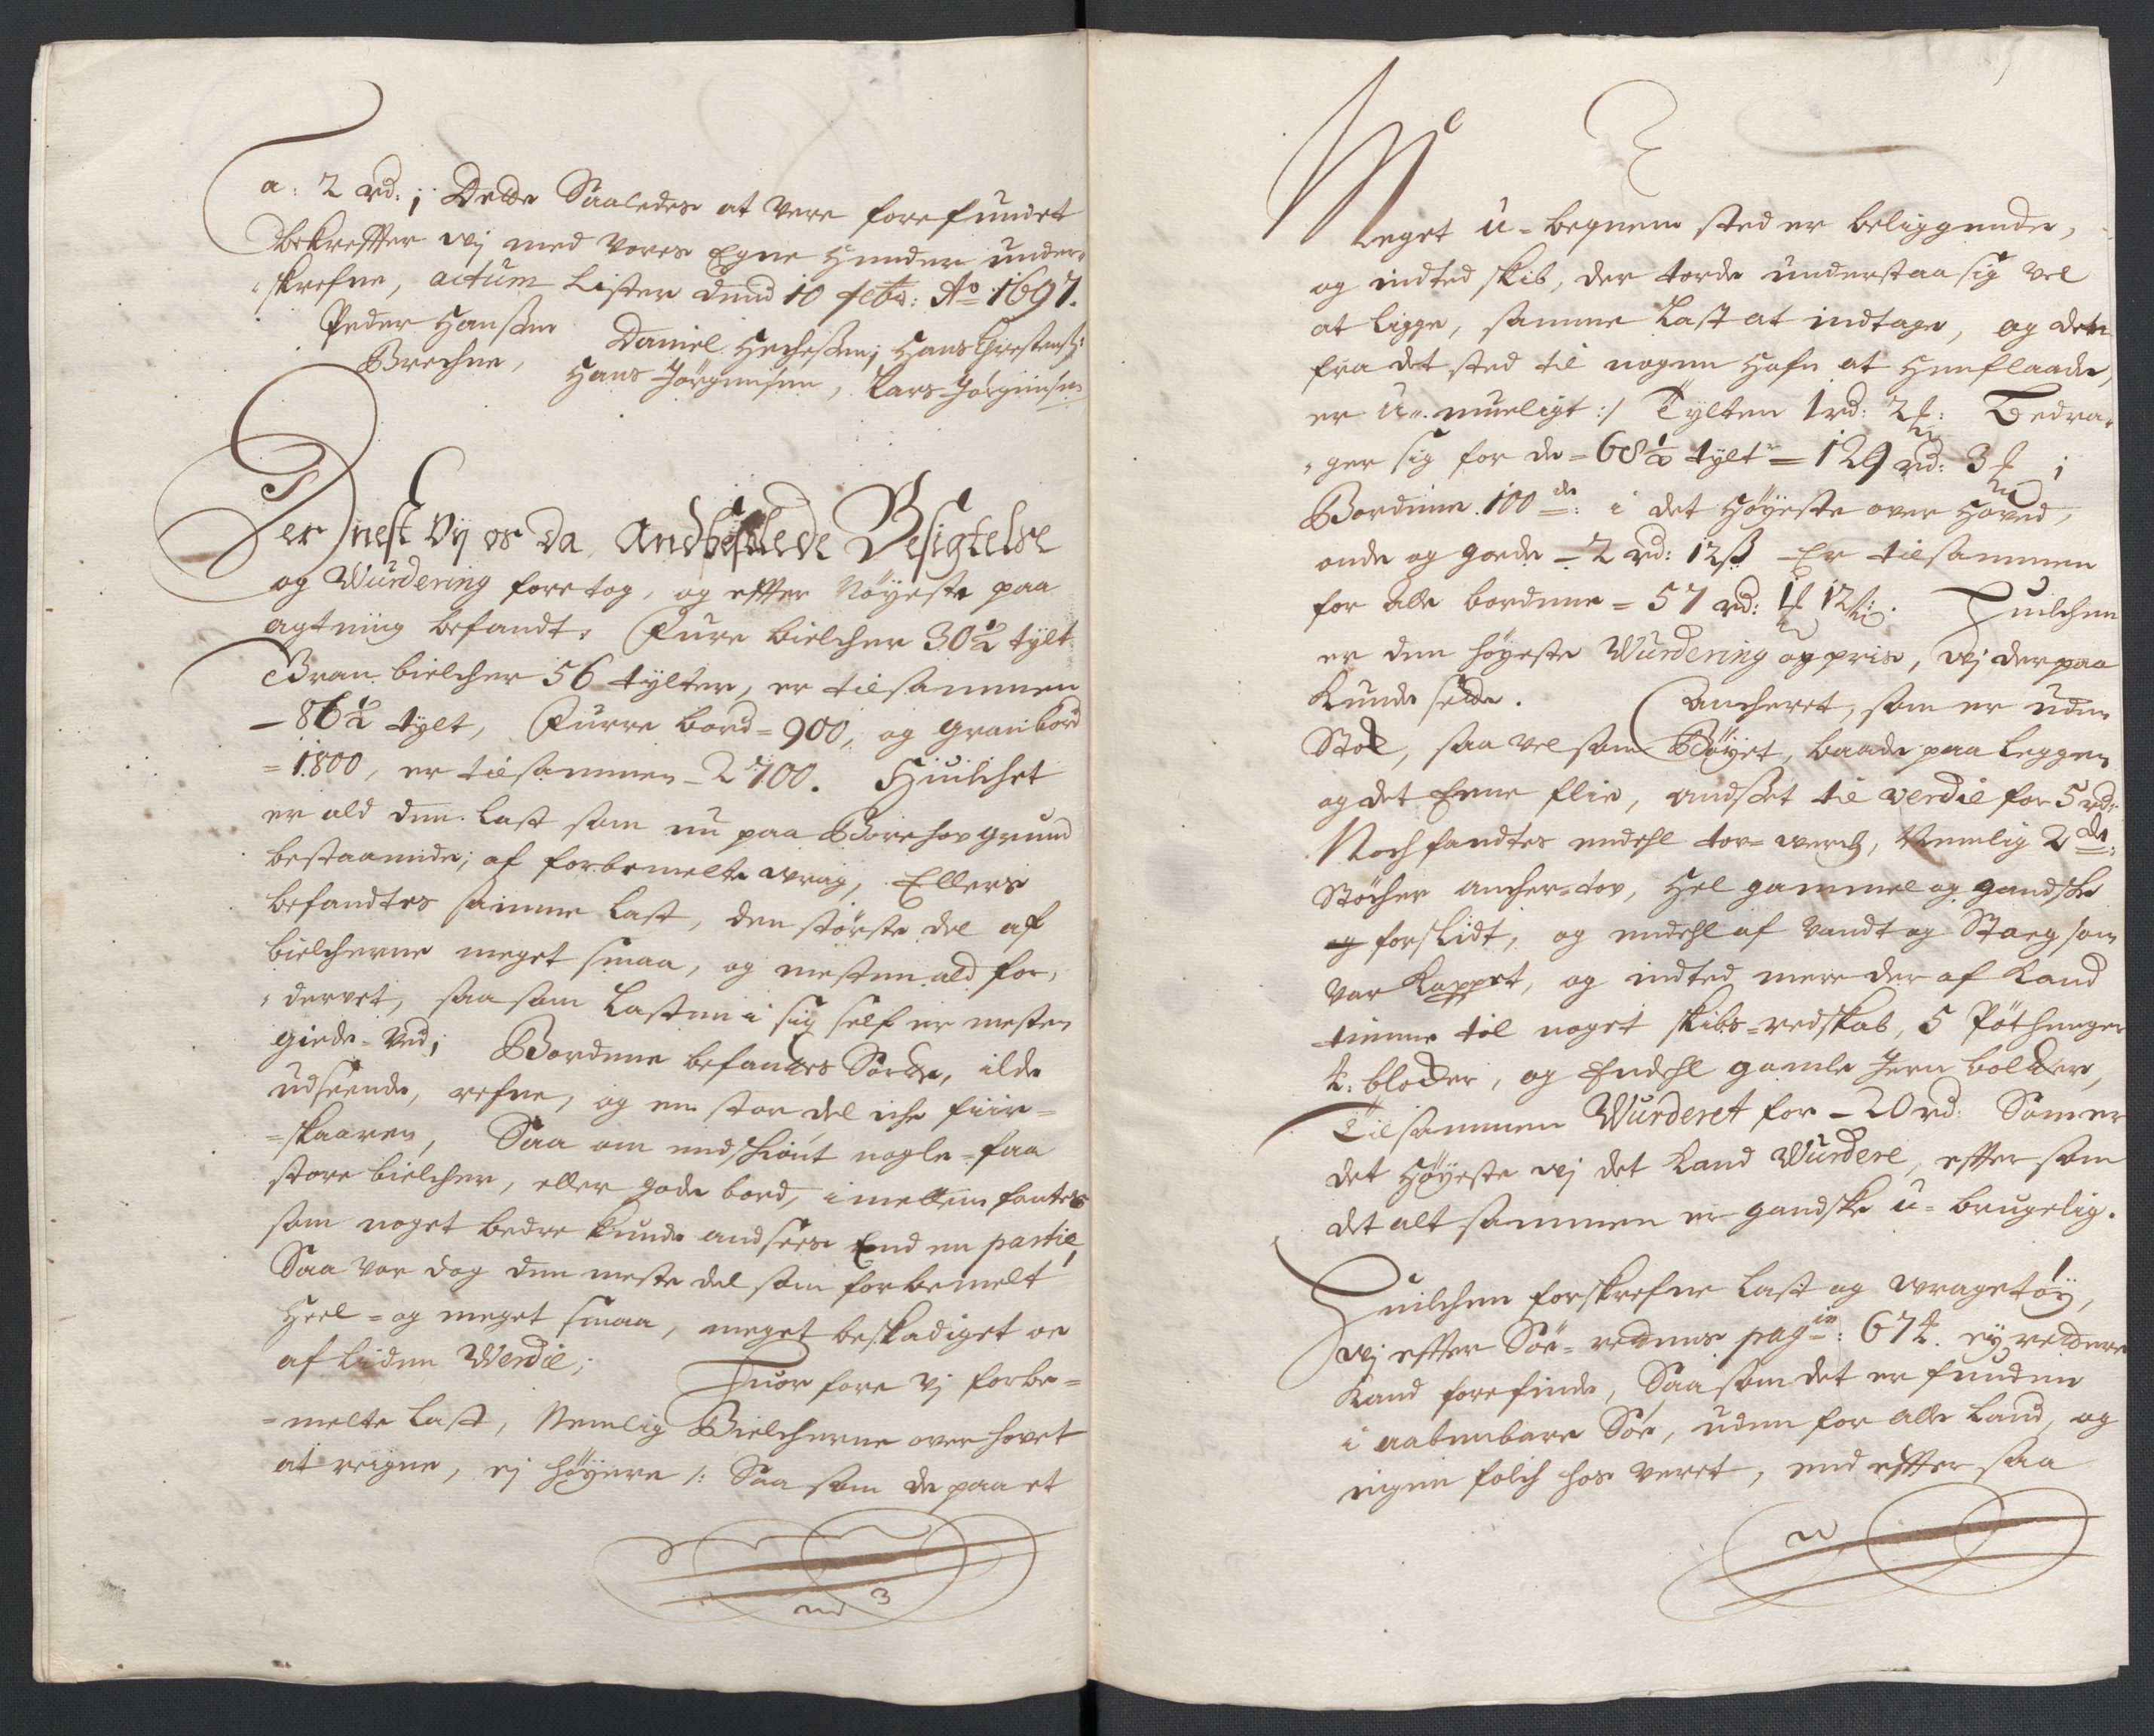 a: 2 rd: ; Dette Saaledes at være forefundet
bekreffter wj med vores Egne Hender under-
skrefne, actum Lister dend 10 febr: Ao 1697.
Peder Hanssen Daniel Hechessen; Hans Christens:
Brechne, Hans Jörgensen, Lars Jörgensen
Der nest Vij os da andbefalede Besigtelse
og Wurdering foretog, og effter Nöyeste paa
agtning befandt: Fure bielcher 30½ tylt
Gran bielcher 56 tylter, er tilsammen
- 86½ tylt, Furre bord = 900, og gran bord
= 1800, er tilsammen - 2700. Huilchet
er ald den Last som nu paa Borehov grund
bestaaende; af forbemelte wrag, Ellers
befandtes samme Last, den störste del af
bielcherne meget smaa, og mesten ald for-
dervet, saa som Lasten i sig self er mesten
giede-ved; Bordene befantes Sorte, ilde
udseende, refne, og en stor del iche fiir-
=skaaren, Saa om endschiönt nogle-faa
store bielcher, eller gode bord, imellem fantes
som noget bedre kunde andsees End en partie,
Saa var dog den meste del som forbemelt
Heel- og meget smaa, meget beskadiget oc
af liden Werdie; Huorfore vj forbe-
=melte Last, Nemlig Bielcherne over hovet
at reigne, ej höyere /: Saa som de paa et
Meget u-beqvem sted er beliggende,
og indted skib, der torde understaa sig vel
at ligge, samme Last at indtage, og dem
fra det sted til nogen Hafn at Henflaade,
er u-mueligt :/ Tylten 1 rd: 2 : Bedra-
ger sig for de = 68½ tylt = 129 rd: 3 ;
Bordene 100de: i det Höyeste over Hoved,
onde og goede - 2 rd: 12 ß Er tilsammen
for alle bordene = 57 rd: 1 12 ß. Huilchen
er den höyeste Wurdering og pris, wj derpaa
kunde sette. Ancheret, som er uden
Stok, saa vel som Böyet, baade paa Leggen
og det Eene flie, andset til verdie for 5 rd:
Noch fandtes endehl tov-verch, Nemlig 2de:
Stöcher ancher-tov, Hel gammel og gandske
og forslidt, og endehl af vandt og Staeg som
var kappet, og indted mere der af kand
tienne til noget skibs-redskab, 5 Pötthenger
4: blocker, og Endehl gamle Jern bolter,
Tilsammen Wurderet for - 20 rd: Som er
det Höyeste wj det kand Wurdere, efftersom
det altsammen er gandske u-brugelig.
Huilchen forskrefne Last og wragetöy,
wj effter Söe-rettens pagin: 674. ey rettere
kand forefinde, Saasom det er funden
i aabenbare Söe, uden for alle Land, og
ingen folch hos veret, end effter saa